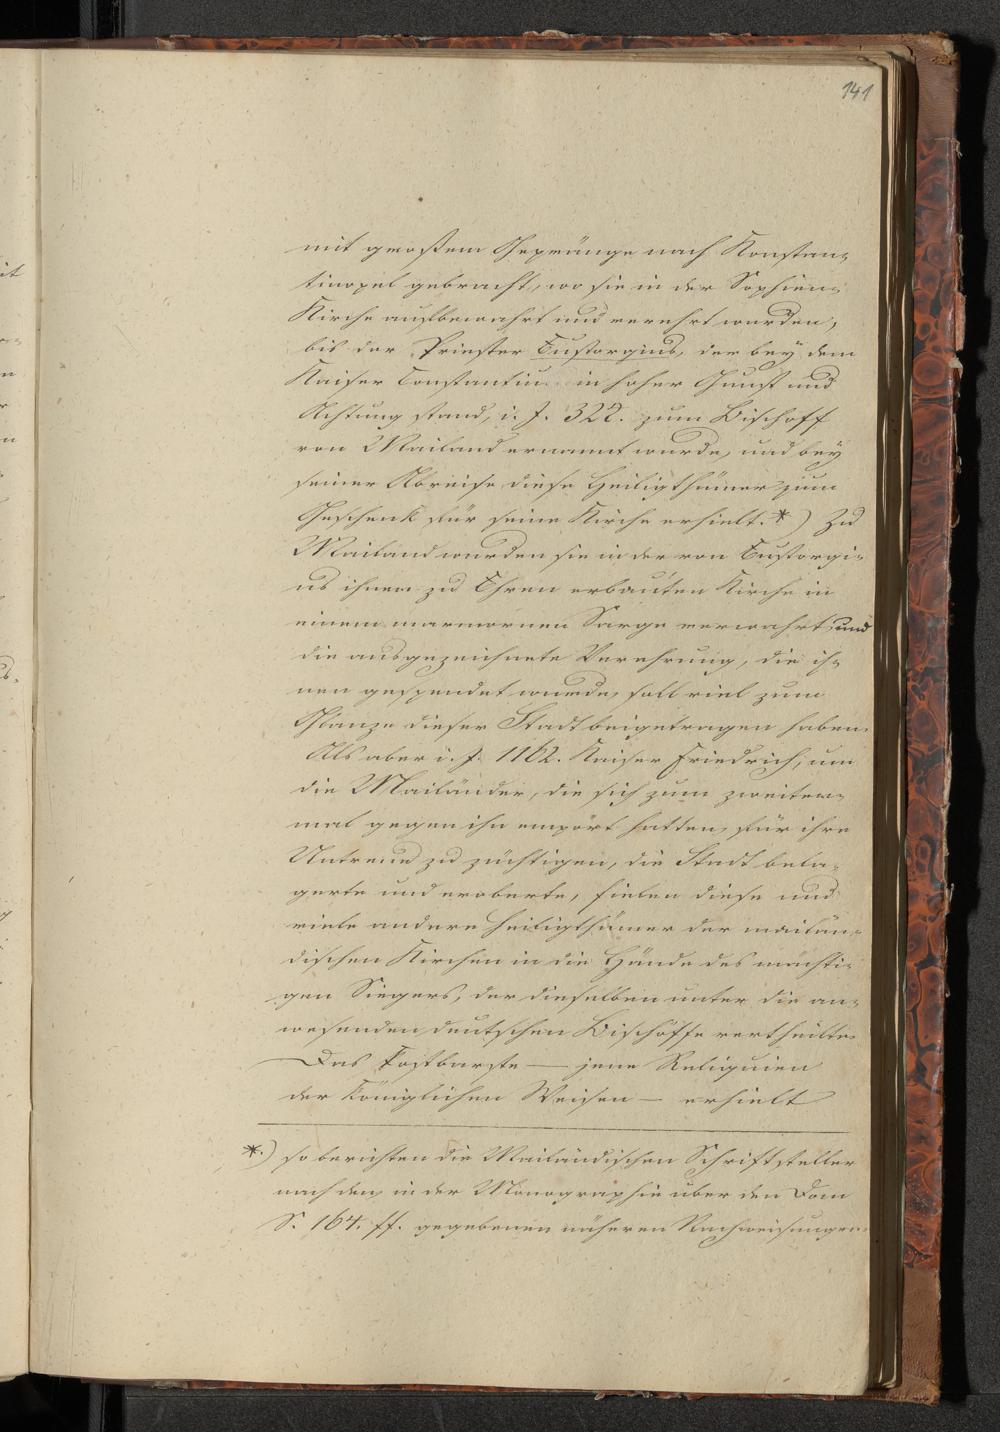 141
mit großem Gepränge nach Konstan-
tinopel gebracht, wo sie in der Sophien-
Kirche aufbewahrt und verehrt wurden,
bis der Priester Eustorgius, der bey dem
Kaiser Constantin in hoher Gunst und
Achtung stand, i. J. 322. zum Bischoff
von Mailand ernannt wurde, und bey
seiner Abreise diese Heiligthümer zum
Geschenk für seine Kirche erhielt.*) Zu
Mailand wurden sie in der von Eustorgi-
us ihnen zu Ehren erbauten Kirche in
einem marmornen Sarge verwahrt, und
die ausgezeichnete Verehrung, die ih-
nen gespendet wurde, soll viel zum
Glanze dieser Stadt beigetragen haben.
Als aber i. J. 1162. Kaiser Friedrich, um
die Mailänder, die sich zum zweiten-
mal gegen ihn empört hatten, für ihre
Untreue zu züchtigen, die Stadt bela-
gerte und eroberte, fielen diese und
viele andere Heiligthümer der mailän-
dischen Kirchen in die Hände des mächti-
gen Siegers, der dieselben unter die an-
wesenden deutschen Bischöffe vertheilte.
Das Kostbarste — jene Reliquien
der königlichen Weisen — erhielt
*.) so berichten die Mailändischen Schriftsteller
nach den, in der Monographie über den Dom
S. 164. ff. gegebenen näheren Nachweisungen.